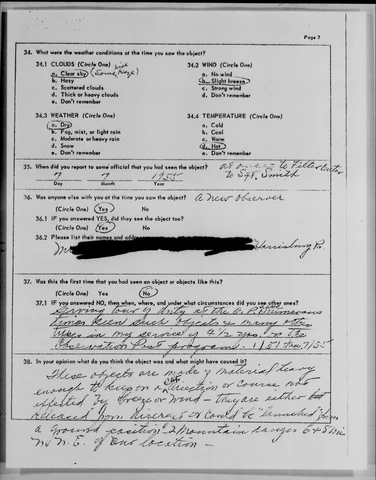 Page 7
34. What were the weather conditions at the time you saw the object?
34.1 CLOUDS (Circle One)
a. Clear sky (Some Haze)
b. Hazy
c. Scattered clouds
d. Thick or heavy clouds
e. Don't remember
34.2 WIND (Circle One)
a. No wind
b. Slight breeze
c. Strong wind
d. Don't remember
34.3 WEATHER (Circle One)
a. Dry
b. Fog, mist, or light rain
c. Moderate or heavy rain
d. Snow
e. Don't remember
34.4 TEMPERATURE (Circle One)
a. Cold
b. Cool
c. Warm
d. Hot
e. Don't remember
35. When did you report to some official that you had seen the object?
7 7 1955
Day Month Year
at once - to Filter Center
to Sgt. Smith
36. Was anyone else with you at the time you saw the object? A new observer
(Circle One) Yes No
36.1 IF you answered YES, did they see the object too?
(Circle One) Yes No
36.2 Please list their names and addresses:
Harrisburg Pa.
37. Was this the first time that you had seen an object or objects like this?
(Circle One) Yes No
37.1 IF you answered NO, then when, where, and under what circumstances did you see other ones?
Serving tour of duty at the O.P. Numerous
times seen such objects as many other
times in my service of 4 1/2 years in the
Observation Post program - 1/51 7/55
38. In your opinion what do you think the object was and what might have caused it?
These objects are made of material heavy
enough to keep on a direction or course not
effected by breeze or wind - they are either
released from Aircraft or could be "launched" from
a ground position - 2 Mountain ranges 6 & 8 mi
N. N.E. of our location -